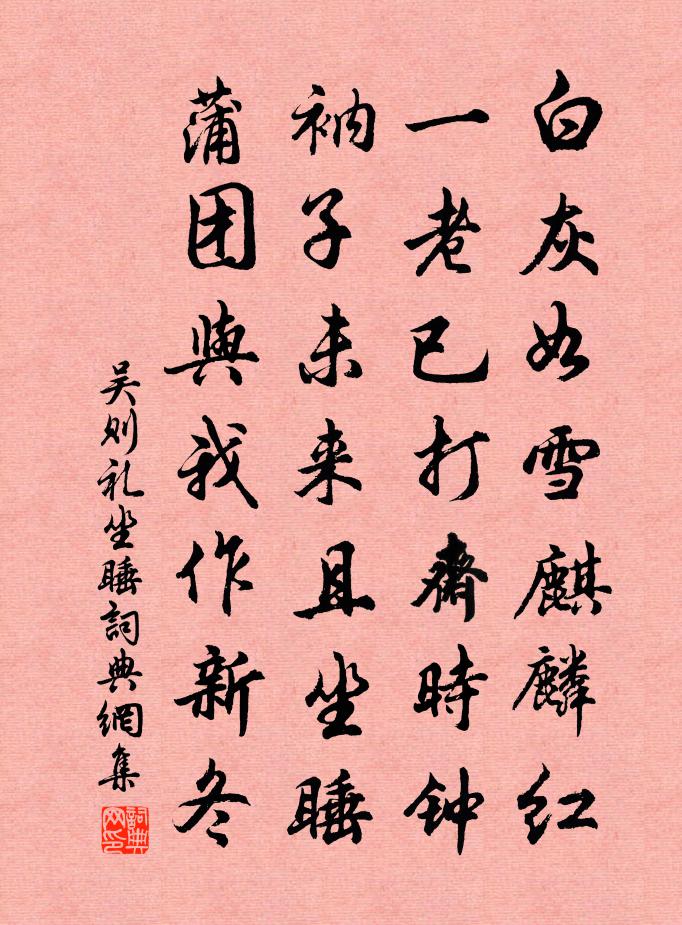 白灰如雪麒麟红
一老已打齋時钟
衲子未来且坐睡
蒲团與我作新冬
吴则礼坐睡詞典網集
詞典网印